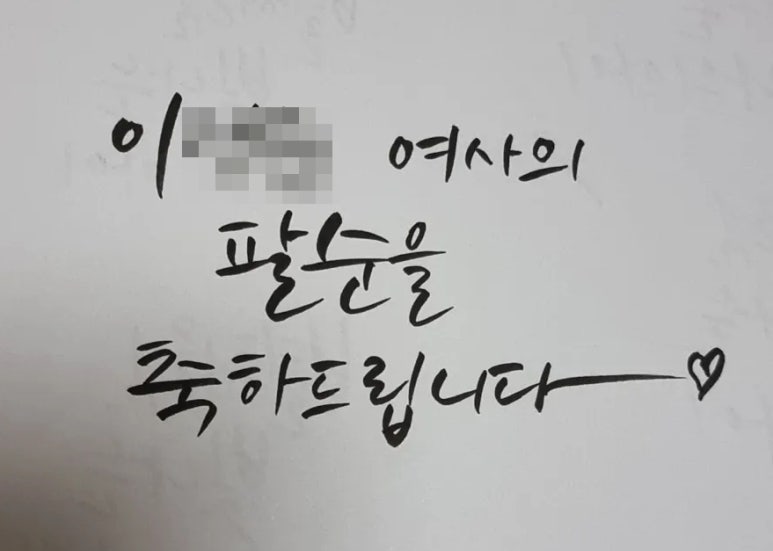 이 여사의
팔순을
축하드립니다